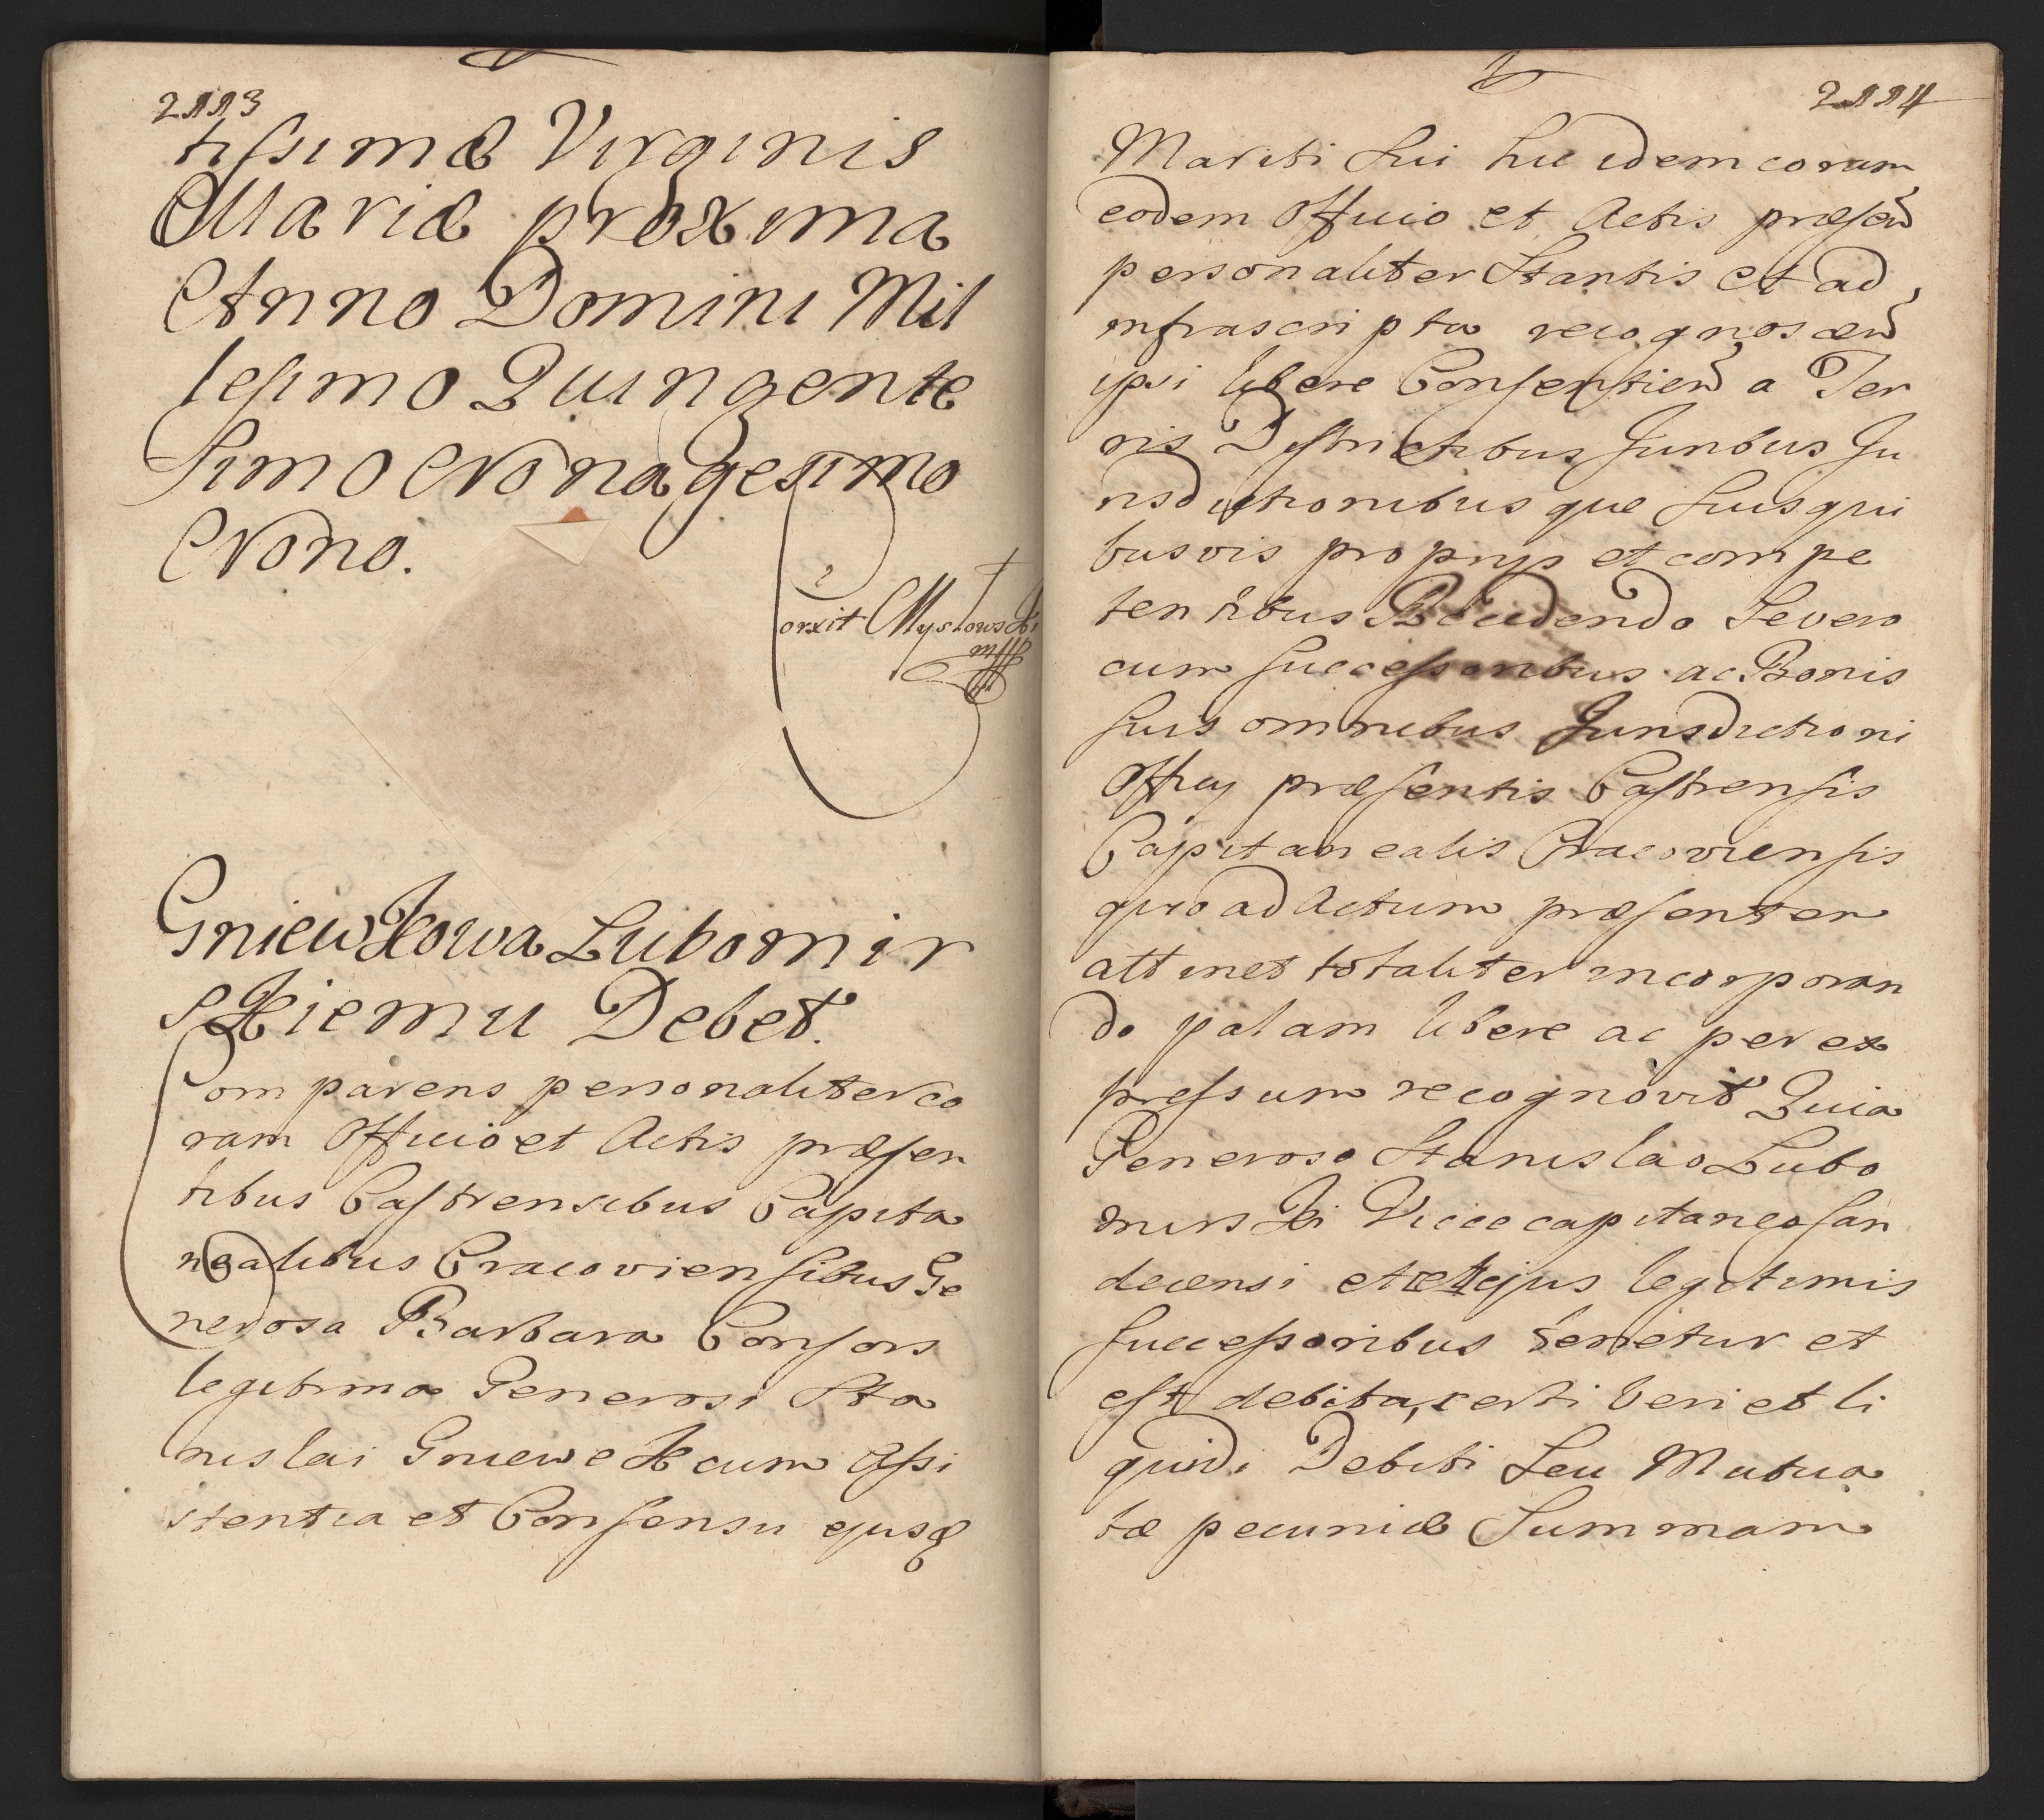 2113
tissimæ Virginis
Mariæ proxima
Anno Domini Mil
lesimo Quingente
simo Nonagesimo
Nono.
Correxit Mystowski
Gniewkowa Lubomir
skiemu Debet.
Comparens personaliter co
ram Officio et Actis præsen
tibus Castrensibus Capita
nealibus Cracoviensibus Ge
nerosa Barbara Consors
legitima Generosi Sta
nislai Gniewek cum Assi
stentia et Consensu ejusq
2114
Mariti Sui hic idem coram
eodem Officio et Actis præsen
personaliter Stantis et ad
infrascripta recognoscen
ipsi libere Consentien a Ter
ris Districtibus Juribus Ju
risdictionibus que Suis qui
busvis proprijs et compe
tentibus Recedendo Se vero
cum Successoribus ac Bonis
Suis omnibus Jurisdictioni
Officij præsentis Castrensis
Capitanealis Cracoviensis
quo ad Actum præsentem
attinet totaliter incorporan
do palam libere ac per ex
pressum recognovit Quia
Generoso Stanislao Lubo
mirski Vicecapitaneo San
decensi et ejus legitimis
Successoribus tenetur et
est debita, certi veri et li
quidi Debiti Seu Mutua
tæ pecuniæ Summam